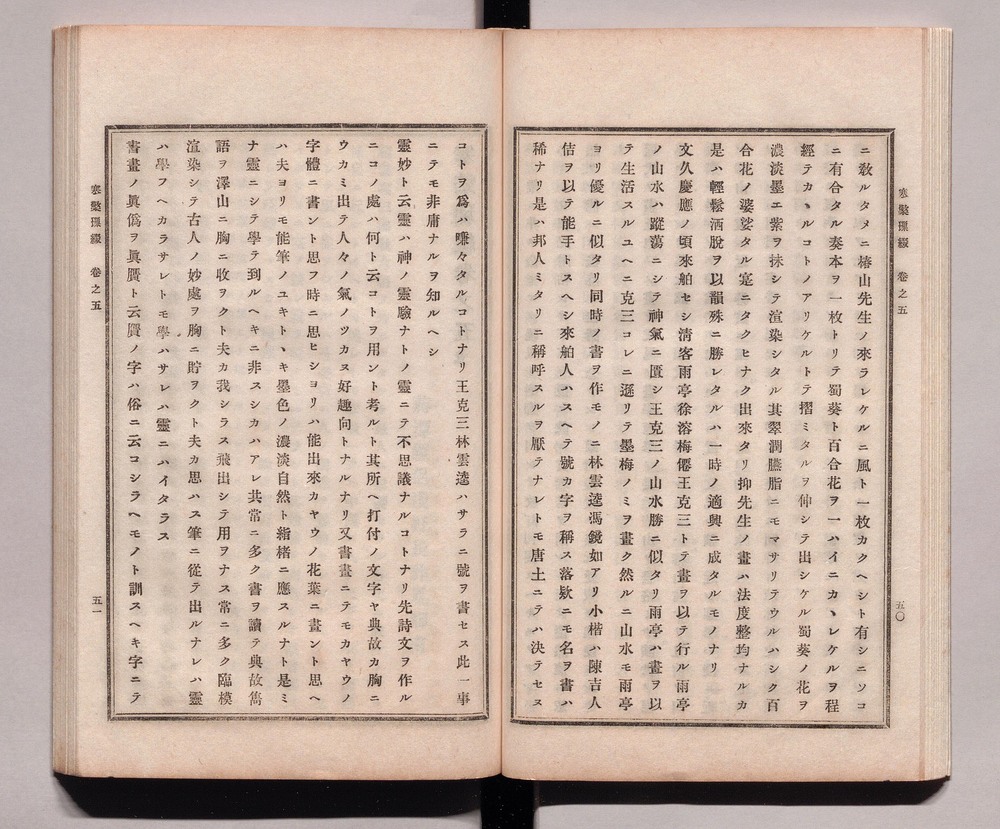 寒檠璅綴 卷之五
五〇
ニ敎ルタメニ椿山先生ノ來ラレケルニ風ト一枚カクヘシト有シニソコ
ニ有合タル奏本ヲ一枚トリテ蜀葵ト百合花ヲ一ハイニカヽレケルヲ程
經テカヽルコトノアリケルトテ摺ミタルヲ伸シテ出シケル蜀葵ノ花ヲ
濃淡墨エ紫ヲ抹シテ渲染シタル其翠潤臙脂ニモマサリテウルハシク百
合花ノ婆娑タル寔ニタクヒナク出來タリ抑先生ノ畫ハ法度整均ナルカ
是ハ輕鬆洒脫ヲ以韻殊ニ勝レタルハ一時ノ適興ニ成タルモノナリ
文久慶應ノ頃來舶セシ淸客雨亭徐溶梅僊王克三トテ畫ヲ以テ行ル雨亭
ノ山水ハ蹤蕩ニシテ神氣ニ匱シ王克三ノ山水勝ニ似タリ雨亭ハ畫ヲ以
テ生活スルユヘニ克三コレニ遜リテ墨梅ノミヲ畫ク然ルニ山水モ雨亭
ヨリ優ルニ似タリ同時ノ書ヲ作モノニ林雲逵馮鏡如アリ小楷ハ陳吉人
佶ヲ以テ能手トスヘシ來舶人ハスヘテ號カ字ヲ稱ス落欵ニモ名ヲ書ハ
稀ナリ是ハ邦人ミタリニ稱呼スルヲ厭テナレトモ唐土ニテハ決テセヌ
コトヲ爲ハ嗛々タルコトナリ王克三林雲逵ハサラニ號ヲ書セス此一事
ニテモ非庸ナルヲ知ルヘシ
靈妙ト云靈ハ神ノ靈驗ナトノ靈ニテ不思議ナルコトナリ先詩文ヲ作ル
ニコノ處ハ何ト云コトヲ用ント考ルト其所ヘ打付ノ文字ヤ典故カ胸ニ
ウカミ出テ人々ノ氣ノツカヌ好趣向トナルナリ又書畫ニテモカヤウノ
字體ニ書ント思フ時ニ思ヒシヨリハ能出來カヤウノ花葉ニ畫ント思ヘ
ハ夫ヨリモ能筆ノユキトヽキ墨色ノ濃淡自然ト絹楮ニ應スルナト是ミ
ナ靈ニシテ學テ到ルヘキニ非スシカハアレ共常ニ多ク書ヲ讀テ典故雋
語ヲ澤山ニ胸ニ收ヲクト夫カ我シラス飛出シテ用ヲナス常ニ多ク臨模
渲染シテ古人ノ妙處ヲ胸ニ貯ヲクト夫カ思ハス筆ニ從テ出ルナレハ靈
ハ學フヘカラサレトモ學ハサレハ靈ニハイタラス
書畫ノ眞僞ヲ眞贋ト云贋ノ字ハ俗ニ云コシラヘモノト訓スヘキ字ニテ
寒檠璅綴 卷之五
五一